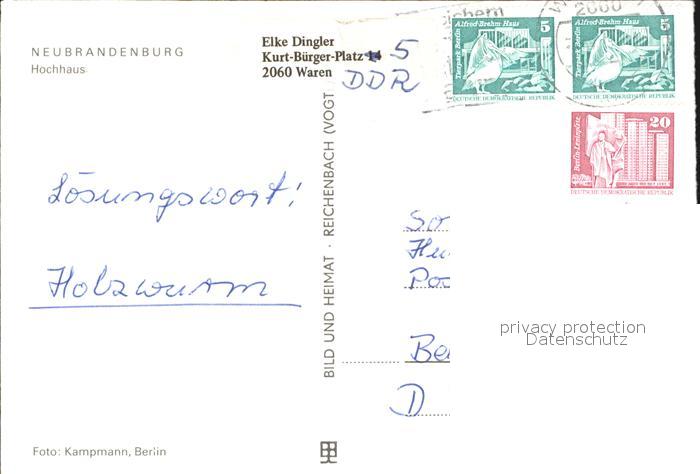 NEUBRANDENBURG
Hochhaus
Elke Dingler
Kurt-Bürger-Platz 14 5
2060 Waren
DDR
2060
Alfred-Brehm-Haus 5
Tierpark Berlin
DEUTSCHE DEMOKRATISCHE REPUBLIK
Alfred-Brehm-Haus 5
Tierpark Berlin
DEUTSCHE DEMOKRATISCHE REPUBLIK
20
Berlin-Leninplatz
DEUTSCHE DEMOKRATISCHE REPUBLIK
Lösungswort:
Holzwurm
BILD UND HEIMAT · REICHENBACH (VOGT
So
Po
Be
D
privacy protection
Datenschutz
Foto: Kampmann, Berlin